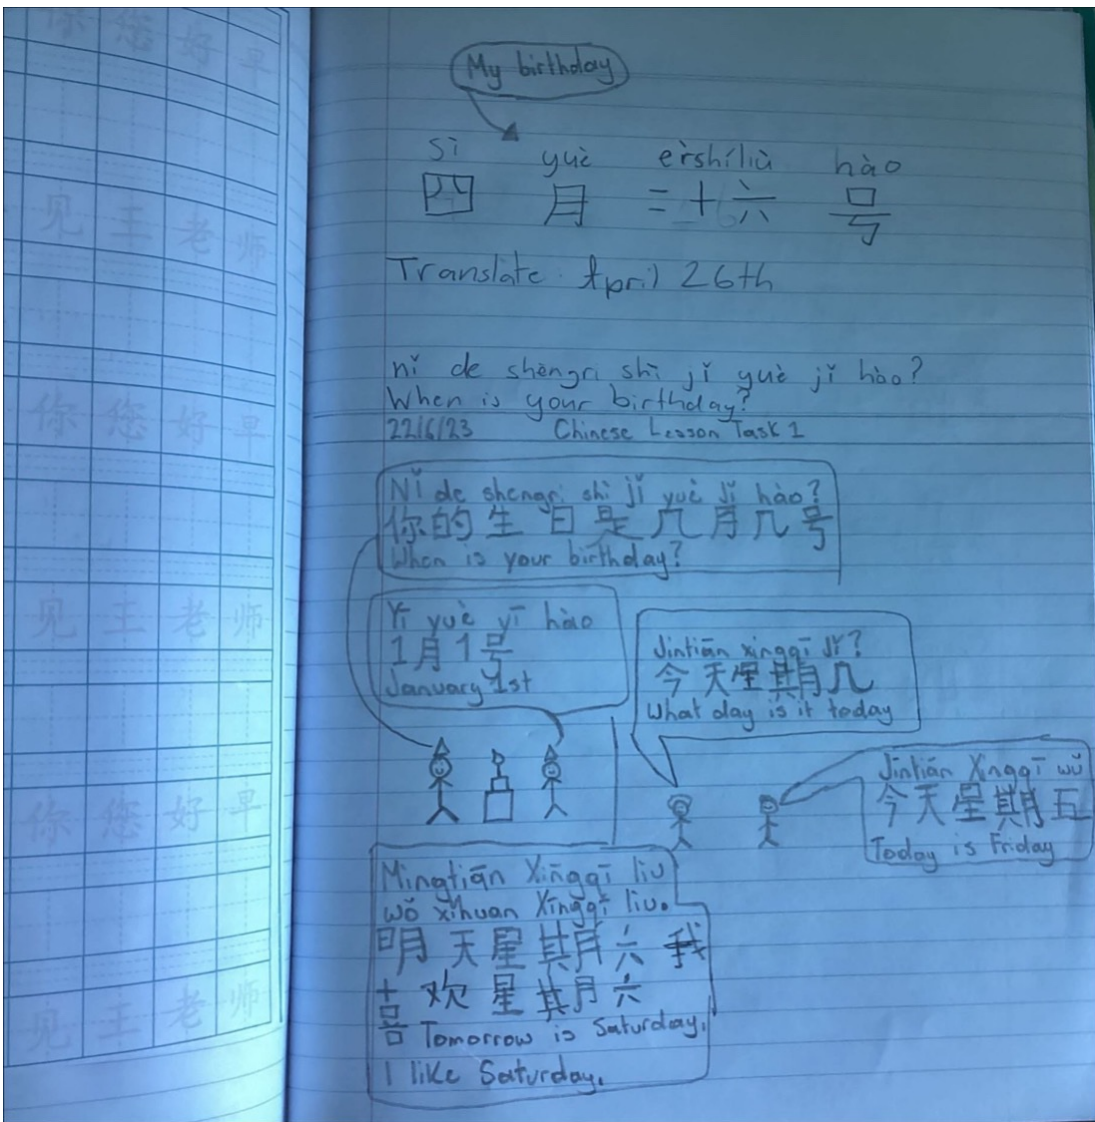 你 您 好 早
见 王 老 师
你 您 好 早
见 王 老 师
你 您 好 早
见 王 老 师
My birthday
sì yuè èrshíliù hào
四 月 二十六 号
Translate April 26th
nǐ de shēngri shì jǐ yuè jǐ hào?
When is your birthday?
22/6/23 Chinese Lesson Task 1
Nǐ de shengri shì jǐ yuè jǐ hào?
你的生日是几月几号
When is your birthday?
Yī yuè yī hào
1月1号
January 1st
Jintiān xingqī jǐ?
今天星期几
What day is it today
Jīntiān Xīngqī wǔ
今天星期五
Today is Friday
Mingtiān Xīngqī liu
wǒ xǐhuan Xīngqī liu.
明天星期六 我
喜欢星期六
Tomorrow is Saturday.
I like Saturday.